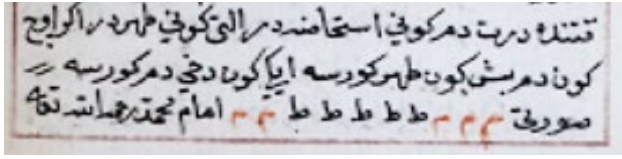 قتنده درت دم كوني استحاضه در التي كوني طهر در اكر اوچ
كون دم بش كون طهر كورسه ايكي كون دخي دم كورسه
صورتي م م م ط ط ط ط ط م م امام محمد رحمه الله